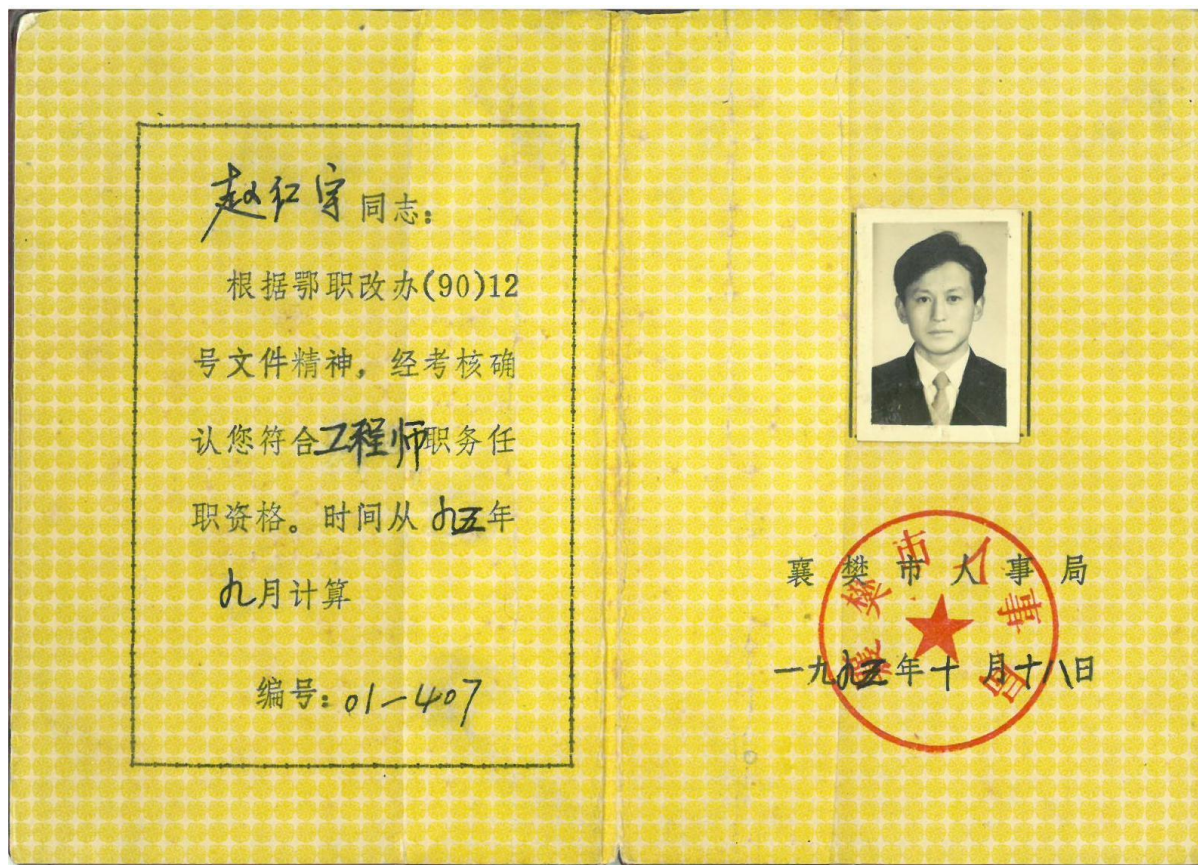 赵红宇同志：
根据鄂职改办(90)12
号文件精神，经考核确
认您符合工程师职务任
职资格。时间从九五年
九月计算
编号：01-407
襄樊市人事局
一九九五年十月十八日
襄樊市人事局